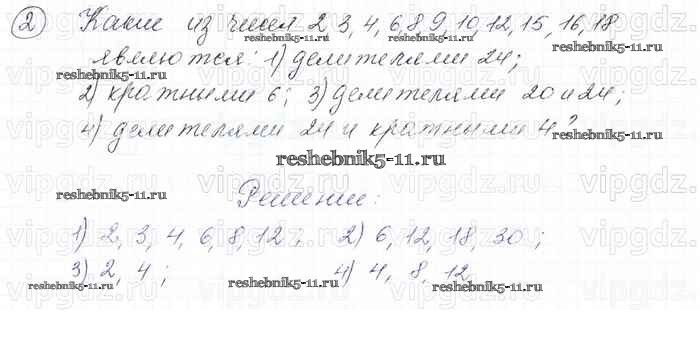 2 Какие из чисел 2, 3, 4, 6, 8, 9, 10, 12, 15, 16, 18
являются: 1) делителями 24;
reshebnik5-11.ru reshebnik5-11.ru
2) кратными 6; 3) делителями 20 и 24;
4) делителями 24 и кратными 4?
reshebnik5-11.ru
reshebnik5-11.ru reshebnik5-11.ru
Решение:
1) 2, 3, 4, 6, 8, 12; 2) 6, 12, 18, 30;
3) 2, 4; 4) 4, 8, 12
reshebnik5-11.ru reshebnik5-11.ru reshebnik5-11.ru
vipgdz.ru vipgdz.ru vipgdz.ru